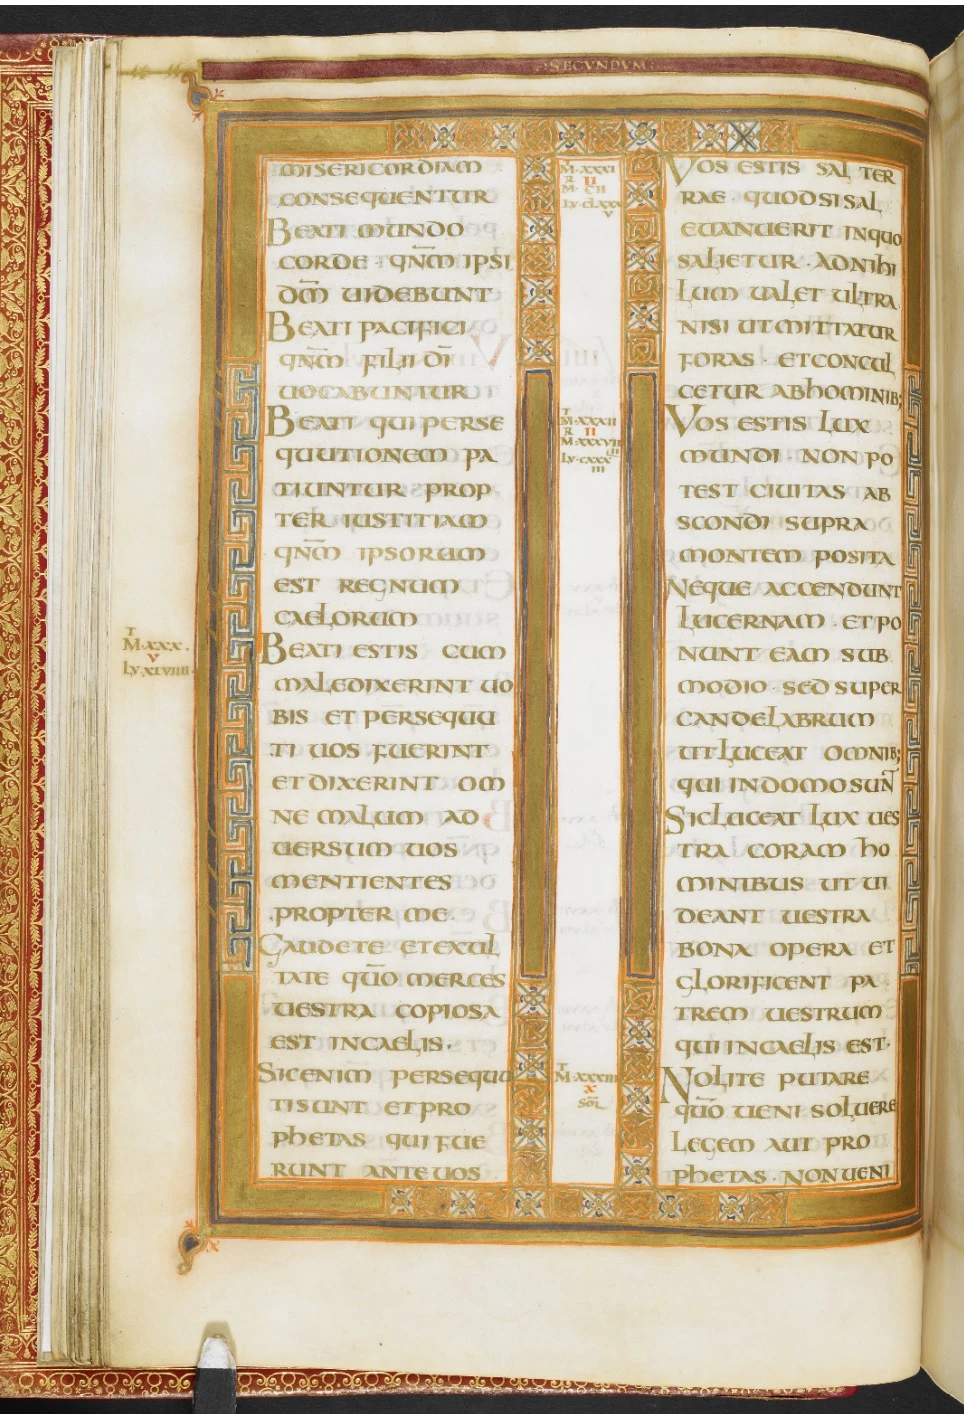 ·:SECUNDUM:·
MISERICORDIAM
CONSEQUENTUR
BEATI MUNDO
CORDE · QN̄M IPSI
DM̄ UIDEBUNT
BEATI PACIFICI
QN̄M FILII DĪ
UOCABUNTUR
BEATI QUI PERSE
QUUTIONEM PA
TIUNTUR PROP
TER IUSTITIAM
QN̄M IPSORUM
EST REGNUM
CAELORUM
BEATI ESTIS CUM
MALEDIXERINT UO
BIS ET PERSEQUU
TI UOS FUERINT
ET DIXERINT OM
NE MALUM AD
UERSUM UOS
MENTIENTES
PROPTER ME ·
GAUDETE ET EXUL
TATE QŪO MERCES
UESTRA COPIOSA
EST IN CAELIS ·
SIC ENIM PERSEQUU
TI SUNT ET PRO
PHETAS QUI FUE
RUNT ANTE UOS
T
M·XXX·
V
LV·XLVIIII
T
M·XXXI
R II
M·CII
LV·CLXXX
V
T
M·XXXII
R II
M·XXXVIIII
LV·CXXX
III
T
M·XXXIII
X
SOL̄
VOS ESTIS SAL TER
RAE · QUOD SI SAL
EUANUERIT IN QUO
SALIETUR · AD NIHI
LUM UALET ULTRA
NISI UT MITTATUR
FORAS · ET CONCUL
CETUR AB HOMINIB;
VOS ESTIS LUX
MUNDI · NON PO
TEST CIUITAS AB
SCONDI SUPRA
MONTEM POSITA
NEQUE ACCENDUNT
LUCERNAM · ET PO
NUNT EAM SUB
MODIO · SED SUPER
CANDELABRUM
UT LUCEAT OMNIB;
QUI IN DOMO SUN̄T
SIC LUCEAT LUX UES
TRA CORAM HO
MINIBUS UT UI
DEANT UESTRA
BONA OPERA ET
GLORIFICENT PA
TREM UESTRUM
QUI IN CAELIS EST·
NOLITE PUTARE
QŪO UENI SOLUERE
LEGEM AUT PRO
PHETAS · NON UENI